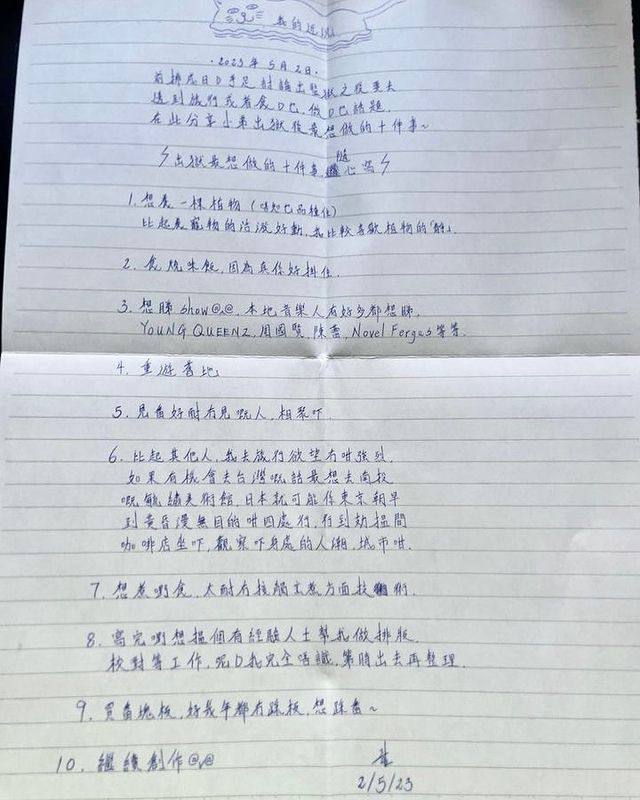 我的近況
·2023年5月2日·
前排成日D手足討論出監獄之後要去
邊到旅行或者食D乜,做D乜話題.
在此分享小弟出獄後最想做的十件事~
⚡出獄最想做的十件事,隨心寫⚡
1. 想養一棵植物 (唔知乜品種住)
比起養寵物的活潑好動,我比較喜歡植物的「靜」.
2. 食燒味飯,因為真係好掛住.
3. 想睇show@.@,本地音樂人有好多都想睇.
YOUNG QUEENZ,周國賢,陳蕾,Novel Fergus等等.
4. 重遊舊地
5. 見番好耐冇見嘅人,相聚吓.
6. 比起其他人,我去旅行欲望冇咁強烈.
如果有機會去台灣嘅話最想去南投
嘅毓繡美術館,日本就可能係東京朝早
到黃昏漫無目的咁四處行,行到攰搵間
咖啡店坐吓,觀察吓身處的人潮,城市咁.
7. 想煮嘢食,太耐冇接觸烹煮方面技術.
8. 寫完嘢想搵個有經驗人士幫我做排版.
校對等工作,呢D我完全唔識,第時出去再整理.
9. 買番塊板,好幾年都冇踩板,想踩番~
10. 繼續創作@v@
2/5/23